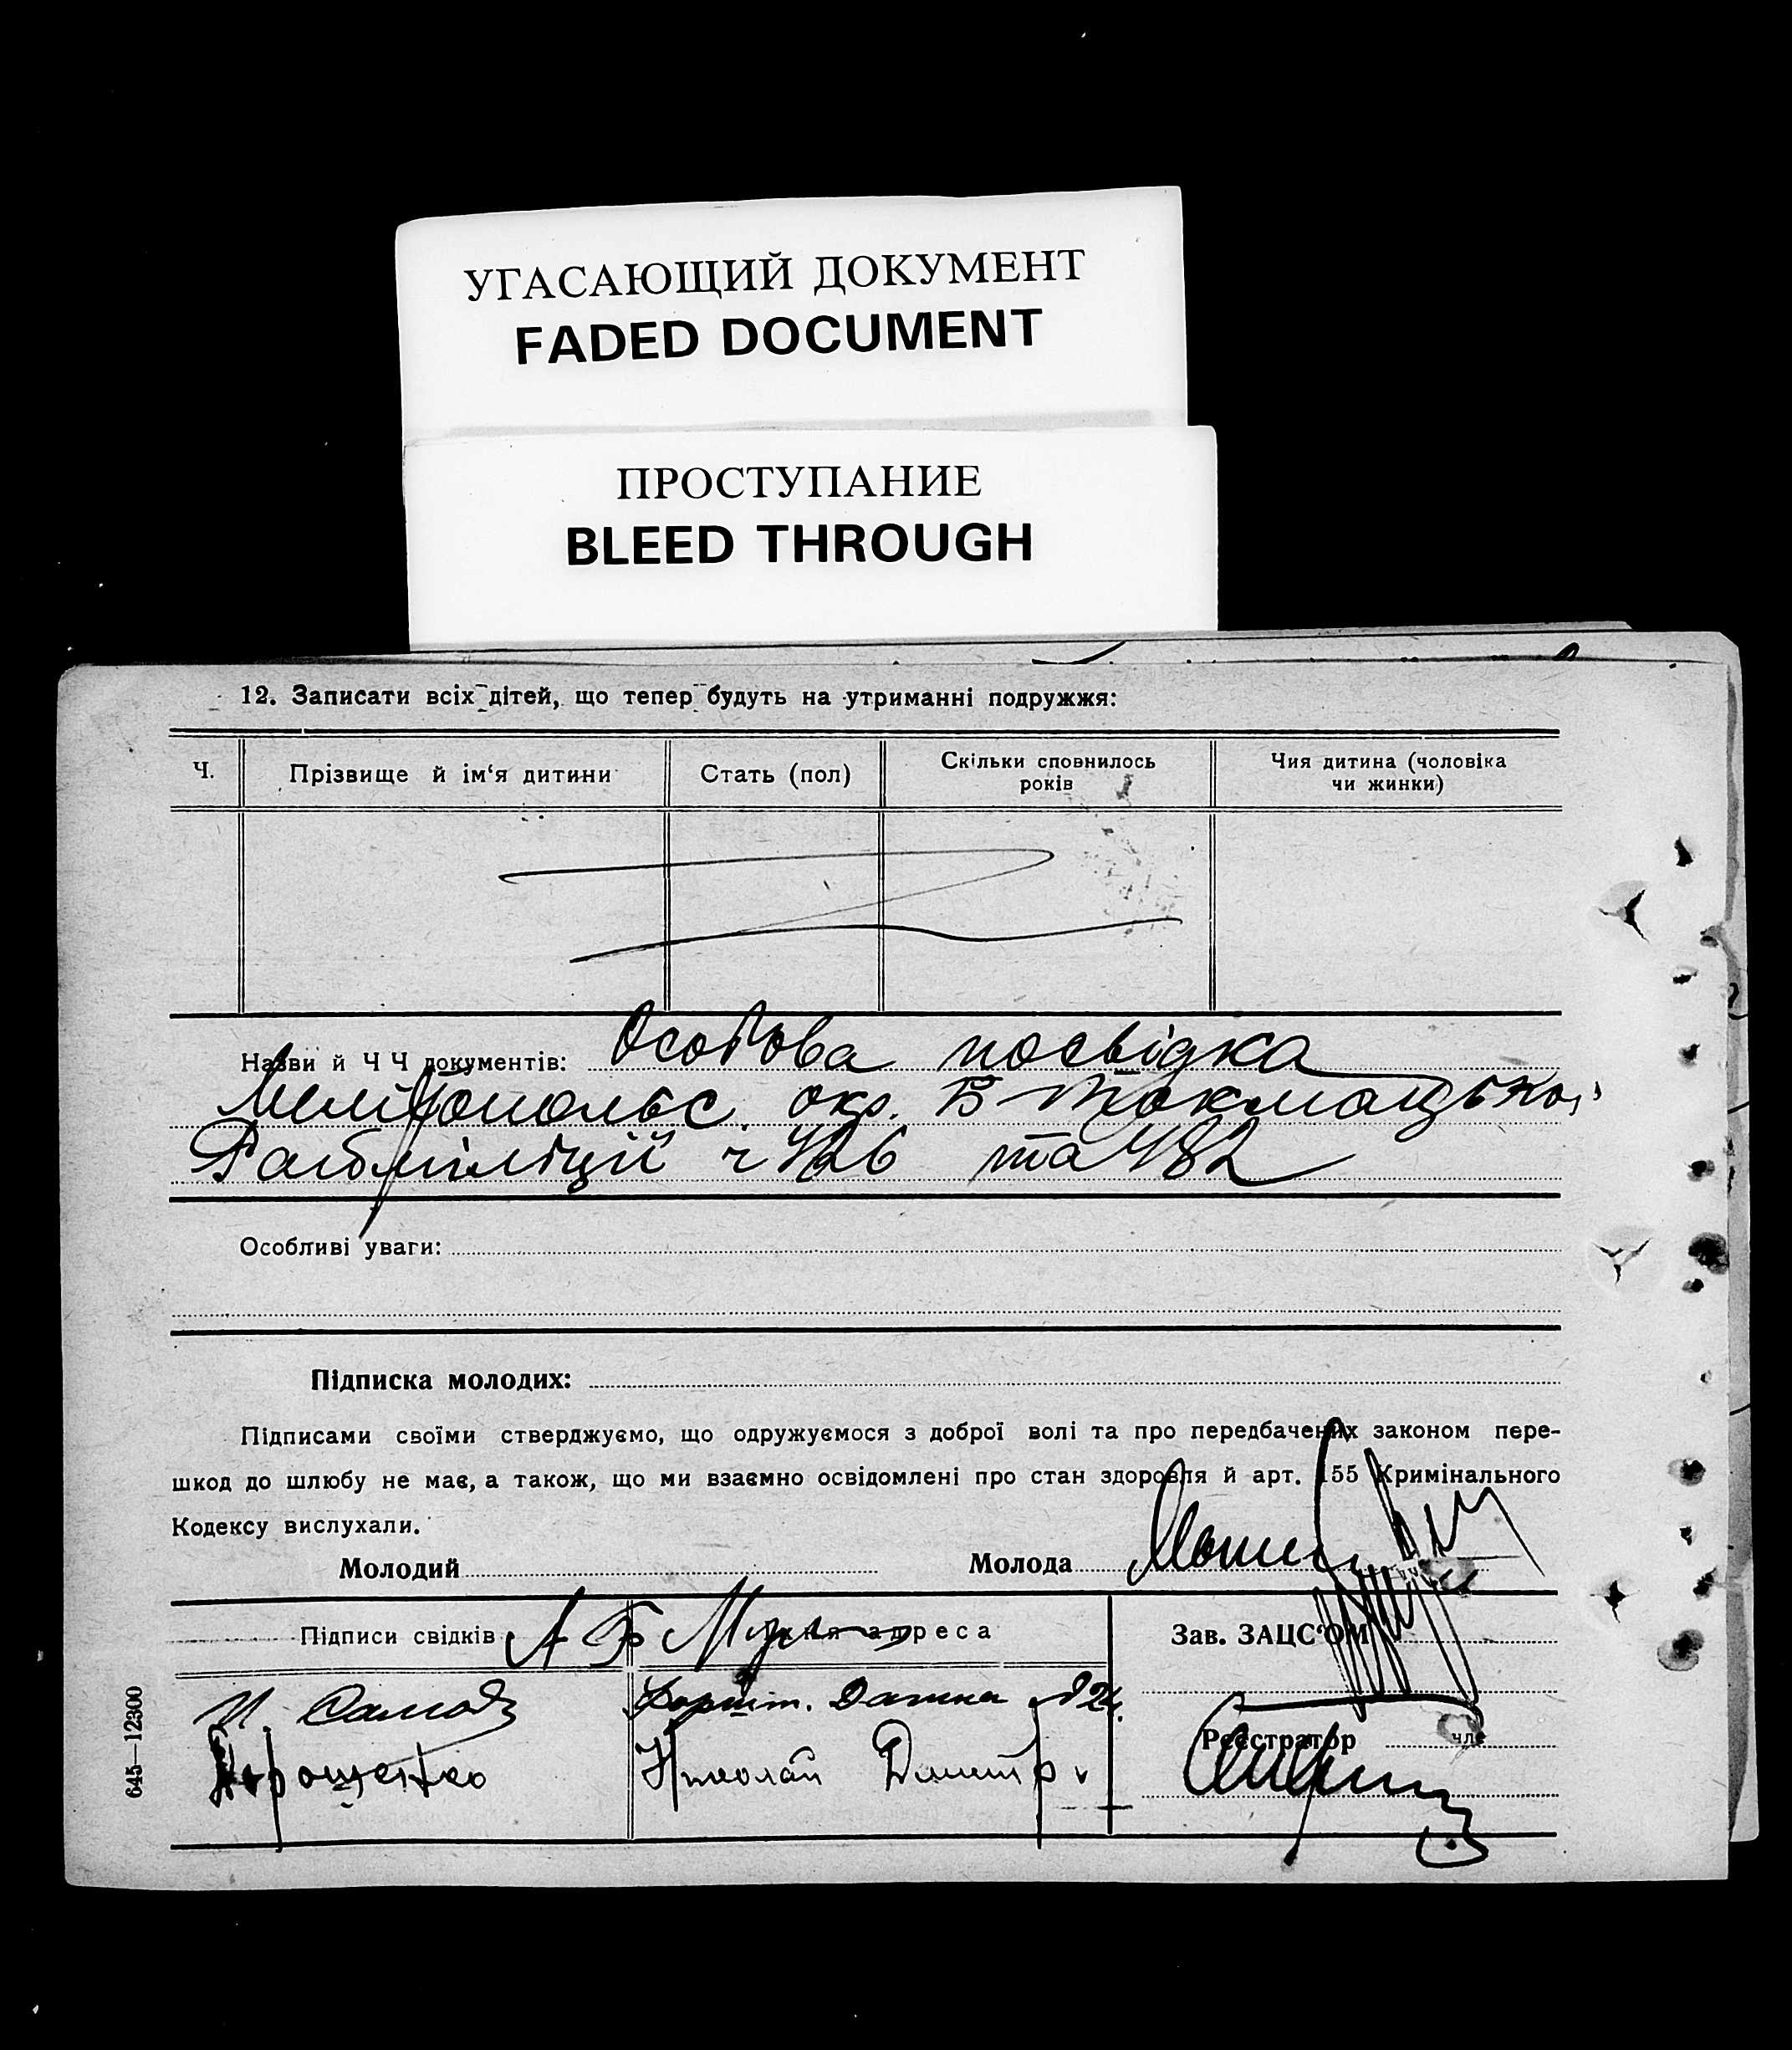 УГАСАЮЩИЙ ДОКУМЕНТ
FADED DOCUMENT
ПРОСТУПАНИЕ
BLEED THROUGH
12. Записати всіх дітей, що тепер будуть на утриманні подружжя:
Ч. Прізвище й ім'я дитини Стать (пол) Скільки сповнилось років Чия дитина (чоловіка чи жинки)
Назви й Ч Ч документів: Особова посвідка
Мелітопольс. окр. Б Токмацької
Рабміліції ч 426 та 482
Особливі уваги:
Підписка молодих:
Підписами своїми стверджуємо, що одружуємося з доброї волі та про передбачених законом пере-
шкод до шлюбу не має, а також, що ми взаємно освідомлені про стан здоровля й арт. 155 Кримінального
Кодексу вислухали.
Молодий Молода
Підписи свідків Їхня адреса Зав. ЗАЦС'ОМ
Реєстратор
Николай
645—12300